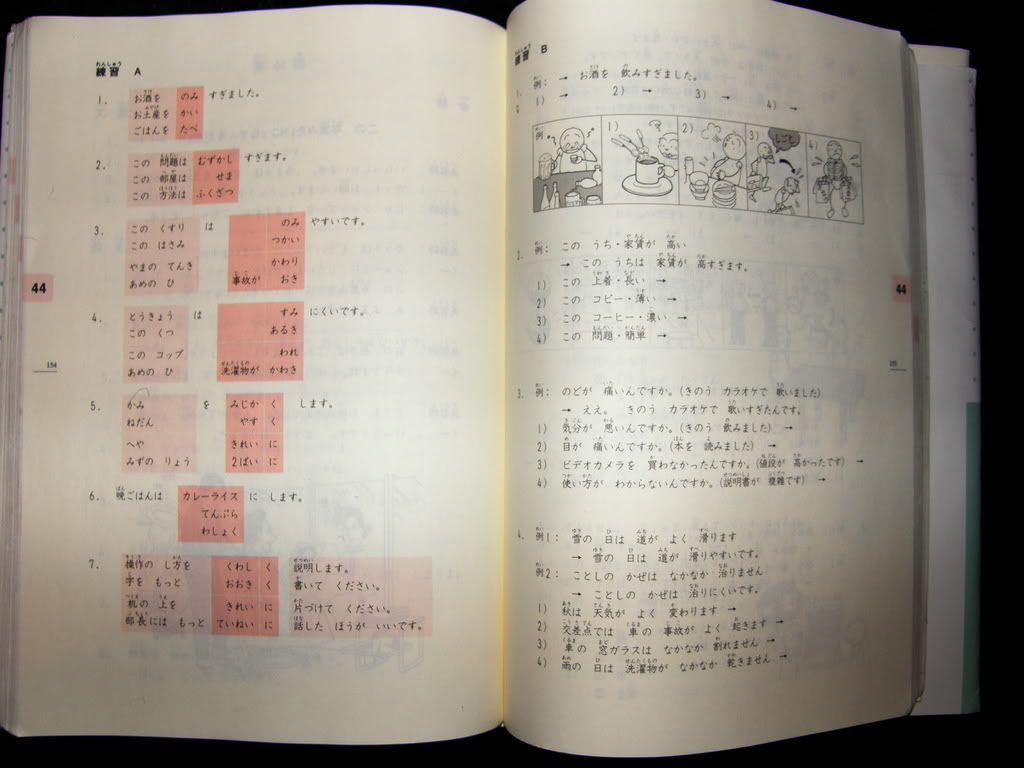 練習 A
1. お酒を のみ すぎました。
お土産を かい
ごはんを たべ
2. この 問題は むずかし すぎます。
この 部屋は せま
この 方法は ふくざつ
3. この くすり は のみ やすいです。
この はさみ つかい
やまの てんき かわり
あめの ひ 事故が おき
4. とうきょう は すみ にくいです。
この くつ あるき
この コップ われ
あめの ひ 洗濯物が かわき
5. かみ を みじか く します。
ねだん やす く
へや きれい に
みずの りょう 2ばい に
6. 晩ごはんは カレーライス に します。
てんぷら
わしょく
7. 操作の し方を くわし く 説明します。
字を もっと おおき く 書いて ください。
机の 上を きれい に 片づけて ください。
部長には もっと ていねい に 話した ほうが いいです。
44
154
練習 B
1. 例： → お酒を 飲みすぎました。
1) → 2) → 3) → 4) →
例 1) 2) 3) しごと 4)
2. 例： この うち・家賃が 高い
→ この うちは 家賃が 高すぎます。
1) この 上着・長い →
2) この コピー・薄い →
3) この コーヒー・濃い →
4) この 問題・簡単 →
3. 例： のどが 痛いんですか。(きのう カラオケで 歌いました)
→ ええ。 きのう カラオケで 歌いすぎたんです。
1) 気分が 悪いんですか。(きのう 飲みました) →
2) 目が 痛いんですか。(本を 読みました) →
3) ビデオカメラを 買わなかったんですか。(値段が 高かったです) →
4) 使い方が わからないんですか。(説明書が 複雑です) →
4. 例1： 雪の 日は 道が よく 滑ります
→ 雪の 日は 道が 滑りやすいです。
例2： ことしの かぜは なかなか 治りません
→ ことしの かぜは 治りにくいです。
1) 秋は 天気が よく 変わります →
2) 交差点では 車の 事故が よく 起きます →
3) 車の 窓ガラスは なかなか 割れません →
4) 雨の 日は 洗濯物が なかなか 乾きません →
44